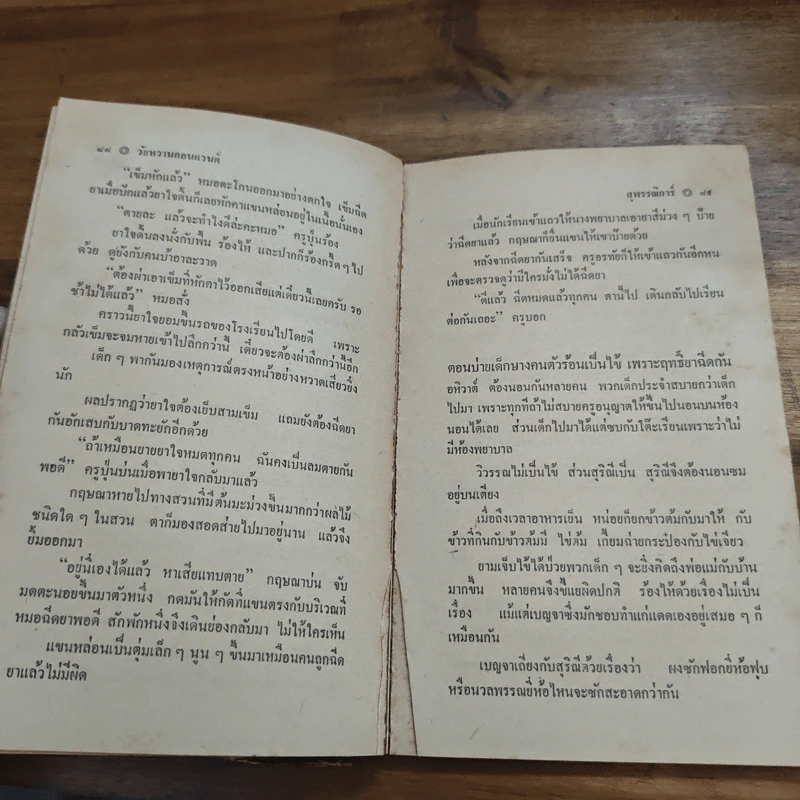 ๘๘ ❂ วัยหวานคอนแวนต์
“เข็มหักแล้ว” หมอตะโกนออกมาอย่างตกใจ เข็มฉีด
ยาเมื่อปักแล้วยาใจดิ้นก็เลยหักคาแขนหล่อนอยู่ในเนื้อนั่นเอง
“ตายละ แล้วจะทำไงดีล่ะคะหมอ” ครูปุ่นร้อง
ยาใจดิ้นลงนั่งกับพื้น ร้องไห้ และปากก็ร้องกรี๊ดๆ ไป
ด้วย ดูยังกับคนบ้าอาละวาด
“ต้องผ่าเอาเข็มที่หักคาไว้ออกเสียแต่เดี๋ยวนี้เลยครับ รอ
ช้าไม่ได้แล้ว” หมอสั่ง
คราวนี้ยาใจยอมขึ้นรถของโรงเรียนไปโดยดี เพราะ
กลัวเข็มจะจมหายเข้าไปลึกกว่านี้ เดี๋ยวจะต้องผ่าลึกกว่านี้อีก
เด็ก ๆ พากันมองเหตุการณ์ตรงหน้าอย่างหวาดเสียวยิ่ง
นัก
ผลปรากฏว่ายาใจต้องเย็บสามเข็ม แถมยังต้องฉีดยา
กันอักเสบกับบาดทะยักอีกด้วย
“ถ้าเหมือนยายยาใจหมดทุกคน ฉันคงเป็นลมตายกัน
พอดี” ครูปุ่นบ่นเมื่อพายาใจกลับมาแล้ว
กฤษณาหายไปทางสวนที่มีต้นมะม่วงขึ้นมากกว่าผลไม้
ชนิดใด ๆ ในสวน ตาก็มองสอดส่ายไปมาอยู่นาน แล้วจึง
ยิ้มออกมา
“อยู่นี่เองได้แล้ว หาเสียแทบตาย” กฤษณาบ่น จับ
มดตะนอยขึ้นมาตัวหนึ่ง กดมันให้กัดที่แขนตรงกับบริเวณที่
หมอฉีดยาพอดี สักพักหนึ่งจึงเดินย่องกลับมา ไม่ให้ใครเห็น
แขนหล่อนเป็นตุ่มเล็ก ๆ นูน ๆ ขึ้นมาเหมือนคนถูกฉีด
ยาแล้วไม่มีผิด
สุพรรณิการ์ ❂ ๘๙
เมื่อนักเรียนเข้าแถวให้นางพยาบาลเอายาสีม่วง ๆ ป้าย
ว่าฉีดยาแล้ว กฤษณาก็ยื่นแขนให้เขาป้ายด้วย
หลังจากฉีดยากันเสร็จ ครูอรทัยก็ให้เข้าแถวกันอีกหน
เพื่อจะตรวจดูว่ามีใครมั่งไม่ได้ฉีดยา
“ดีแล้ว ฉีดหมดแล้วทุกคน ตานี้ไป เดินกลับไปเรียน
ต่อกันเถอะ” ครูบอก
ตอนบ่ายเด็กบางคนตัวร้อนเป็นไข้ เพราะฤทธิ์ยาฉีดกัน
อหิวาต์ ต้องนอนกันหลายคน พวกเด็กประจำสบายกว่าเด็ก
ไปมา เพราะทุกทีถ้าไม่สบายครูอนุญาตให้ขึ้นไปนอนบนห้อง
นอนได้เลย ส่วนเด็กไปมาได้แต่ซบกับโต๊ะเรียนเพราะว่าไม่
มีห้องพยาบาล
วิวรรณไม่เป็นไข้ ส่วนสุริณีเป็น สุริณีจึงต้องนอนซม
อยู่บนเตียง
เมื่อถึงเวลาอาหารเย็น หน่อยก็ยกข้าวต้มกับมาให้ กับ
ข้าวที่กินกับข้าวต้มมี ไข่ต้ม เกี้ยมฉ่ายกระป๋องกับไข่เจียว
ยามเจ็บไข้ได้ป่วยพวกเด็ก ๆ จะยิ่งคิดถึงพ่อแม่กับบ้าน
มากขึ้น หลายคนจึงขี้แยผิดปกติ ร้องไห้ด้วยเรื่องไม่เป็น
เรื่อง แม้แต่เบญจาซึ่งมักชอบทำแก่แดดเองอยู่เสมอ ๆ ก็
เหมือนกัน
เบญจาเถียงกับสุริณีด้วยเรื่องว่า ผงซักฟอกยี่ห้อฟุบ
หรือนวลพรรณยี่ห้อไหนจะซักสะอาดกว่ากัน